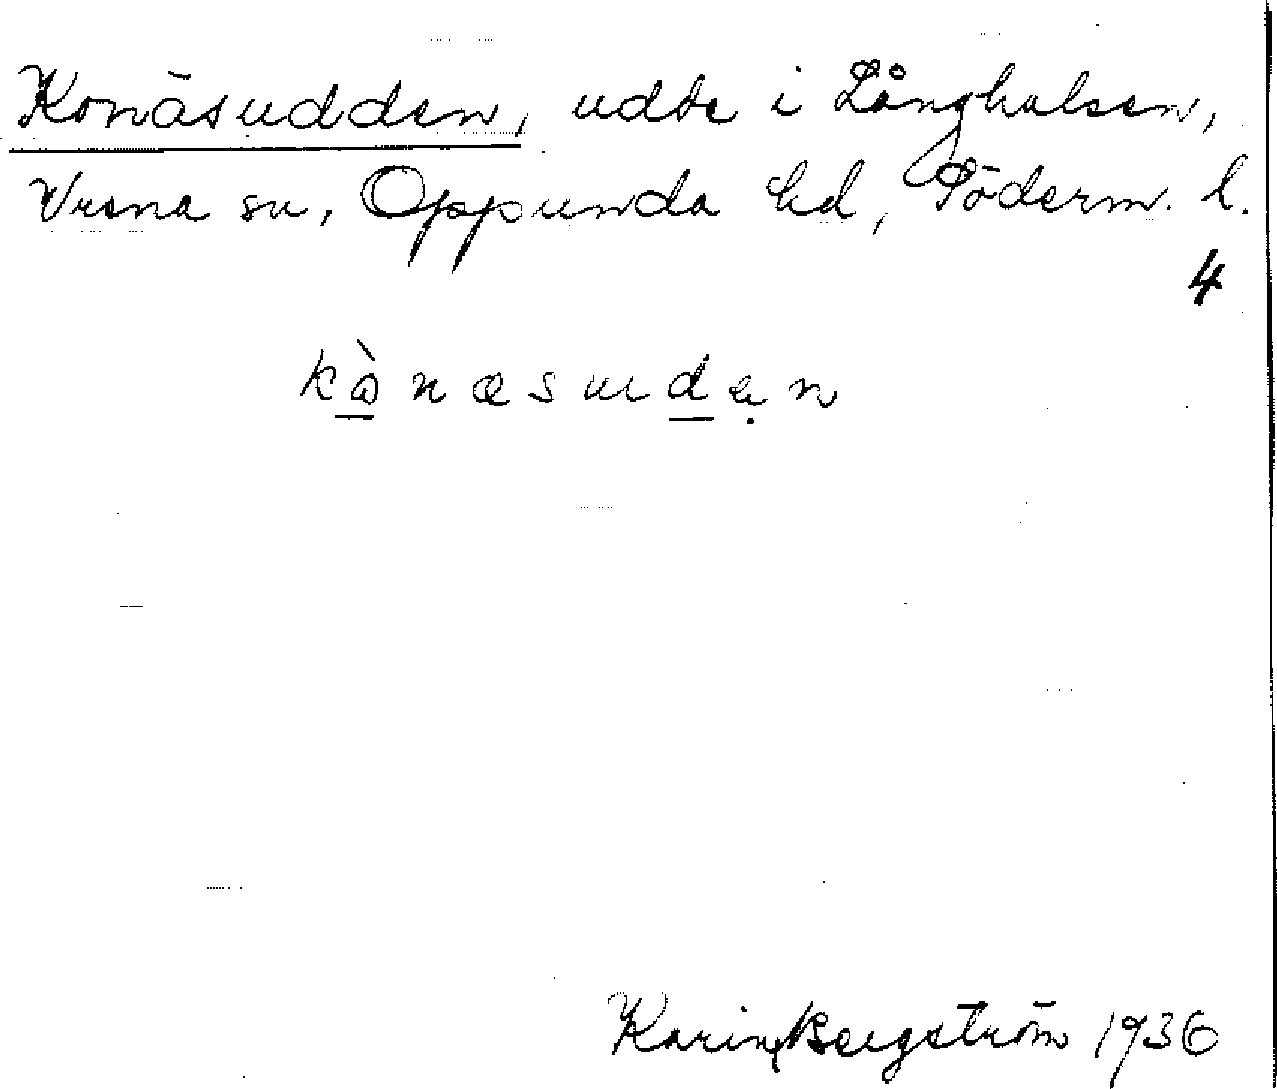 Konäsudden, udde i Långhalsen,
Vrena sn, Oppunda hd, Söderm. l.
4
kὼnæsuden
Karin Bergström 1936